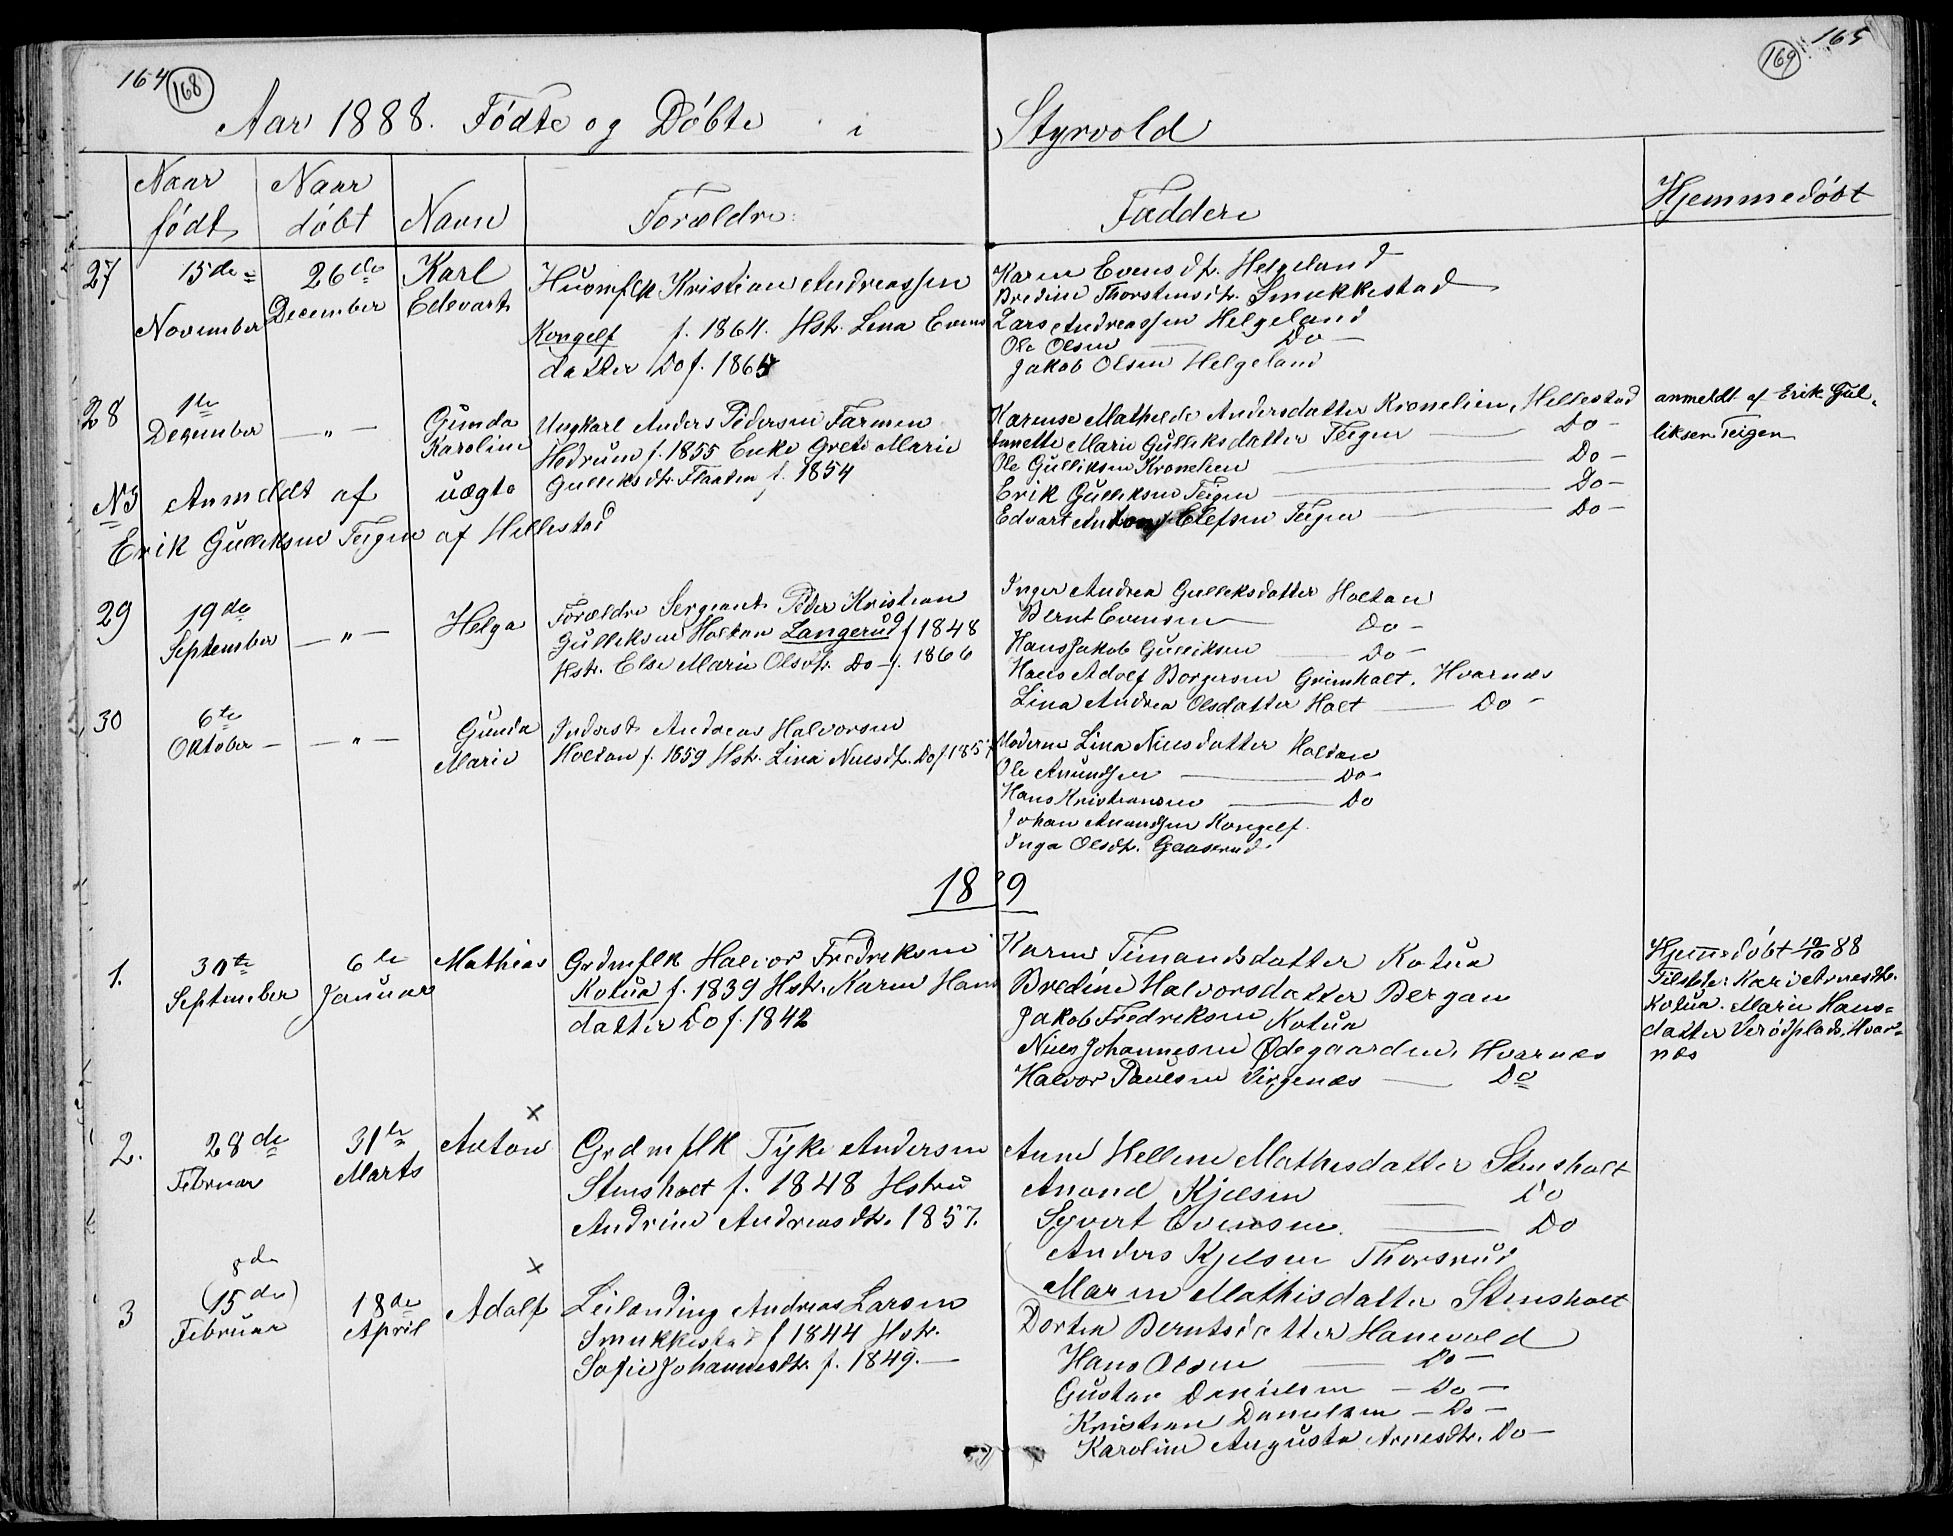 164 168
169 165
Aar 1888. Födte og Döbte i Styrvold
Naar födt
Naar döbt
Navn
Forældre
Faddere
Hjemmedöbt
27
15de November
26de December
Karl Edevart
Huusmflk Kristian Andreassen
Kongelf f. 1864. Hstr. Lina Evens
datter Do f. 1864
Karen Evensdtr. Helgeland
Bredine Thorstensdtr. Smukkestad
Lars Andreassen Helgeland
Ole Olsen — Do —
Jakob Olsen Helgeland
28
1ste December
— " —
Gunda Karoline
uægte
Ungkarl Anders Pedersen Farmen
Hedrum f. 1855 Enke Grete Marie
Gulliksdtr. Flaaten f. 1854
Karense Mathilde Andersdatter Kronelien, Hellestad
Janette Marie Gulliksdatter Teigen — Do —
Ole Gulliksen Kronelien — Do —
Erik Gulliksen Teigen — Do —
Edvart Anton Olefsen Teigen — Do —
anmeldt af Erik Gul-
liksen Teigen
NB Anmeldt af
Erik Gulliksen Teigen af Hellestad
29
19de September
— " —
Helga
Forældre Sergeant Peder Kristian
Gulliksen Holtan Langerud f 1848
Hstr. Else Marie Olsdtr. Do — f. 1866
Inger Andrea Gulliksdatter Holtan
Bernt Evensen — Do —
Hans Jakob Gulliksen — Do —
Hans Adolf Borgersen Grimholt, Hvarnes
Lina Andrea Olsdatter Holt — Do —
30
6te Oktober —
— " —
Gunda Marie
Inderst Andreas Halvorsen
Holtan f. 1859 Hstr. Lina Nielsdtr. Do f 1857
Moderen Lina Nielsdatter Holtan
Ole Amundsen — Do —
Hans Kristiansen — Do
Johan Amundsen Kongelf.
Inga Olsdtr. Gaaserud.
18 9
1.
30te September
6te Januar
Mathias
Grdmflk Halvor Fredriksen
Kotua f. 1839 Hstr. Karen Hans
datter Do f. 1842
Karen Timandsdatter Kotua
Bredine Halvorsdatter Bergan
Jakob Fredriksen Kotua
Niels Johannesen Ødegaarden, Hvarnes
Halvor Paulsen Virgenæs — Do
Hjemmedöbt 10/10 88
Tilstede: Kari Arnesdtr.
Kotua. Marie Hans-
datter Verödplads. Hvar-
nes
2.
28de Februar
31te Marts
x
Anton
Grdmflk Tyke Andersen
Stensholt f. 1848 Hstru
Andrine Andreasdtr. 1857.
Anne Hellene Mathisdatter Stensholt
Anond Kjelsen — Do
Syvert Evensen — Do
Anders Kjelsen Thorsrud
Maren Mathisdatter Stensholt
3
8de
(15de) Februar
18de April
x
Adolf
Leilending Andreas Larsen
Smukkestad f 1844 Hstr.
Sofie Johannesdtr. f. 1849. —
Dorthea Berntsdatter Hanevold
Hans Olsen — Do —
Gustav Danielsen — Do —
Kristian Danielsen — Do —
Karoline Augusta Arnesdtr. Do —